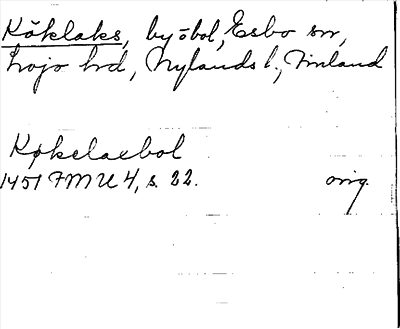 Köklaks, by o bol, Esbo sn,
Lojo hd, Nylands l., Finland
Køkelaxbol
1451 FMU 4, s. 22. orig.